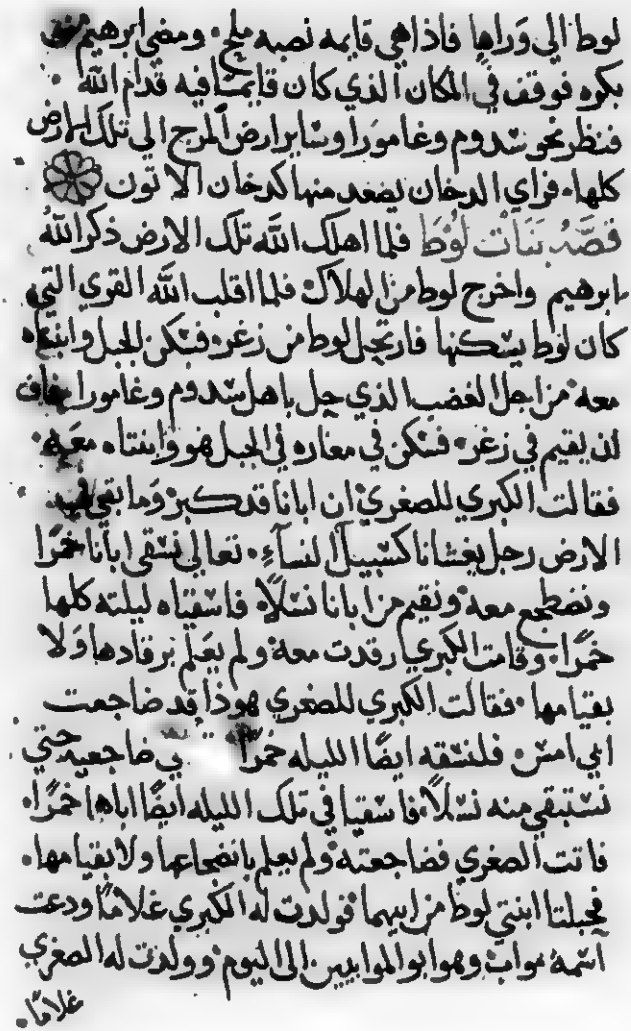 لوط الي وراها فاذا هي قايمه نصبه ملح ومضي ابرهيم من
بكره فوقف في المكان الذي كان قايمـًا فيه قدام الله
فنظر نحو سدوم وغامورا وساير ارض المرج الي تلك الارض
كلها فراي الدخان يصعد منها كدخان الاتون
قصه بنات لوط فلما اهلك الله تلك الارض ذكر الله
ابرهيم واخرج لوط من الهلاك فلما اقلب الله القري التي
كان لوط يسكنها فارتحل لوط من زغر فسكن الجبل وابنتاه
معه من اجل الغضب الذي حل باهل سدوم وغامورا فخاف
لن يقيم في زغر فسكن في مغاره في الجبل هو وابنتاه معه
فقالت الكبري للصغري ان ابانا قد كبر وما بقي في
الارض رجل يغشانا كسبيل النساء تعالي نسقي ابانا خمرًا
ونضطجع معه ونقيم من ابانا نسلاً فاسقتاه ليلته كلها
خمرًا وقامت الكبري رقدت معه ولم يعلم برقادها ولا
بقيامها فقالت الكبري للصغري هوذا قد ضاجعت
ابي امس فلنسقه ايضًا الليله خمرًا ضاجعيه حتي
نستبقي منه نسلاً فاسقيا في تلك الليله ايضًا اباها خمرًا
فاتت الصغري فضاجعته ولم يعلم بانضجاعها ولا بقيامها
فحبلتا ابنتي لوط من ابيهما فولدت له الكبري غلامًا ودعت
اسمه مواب وهو ابو الموابيين الي اليوم وولدت له الصغري
غلامًا